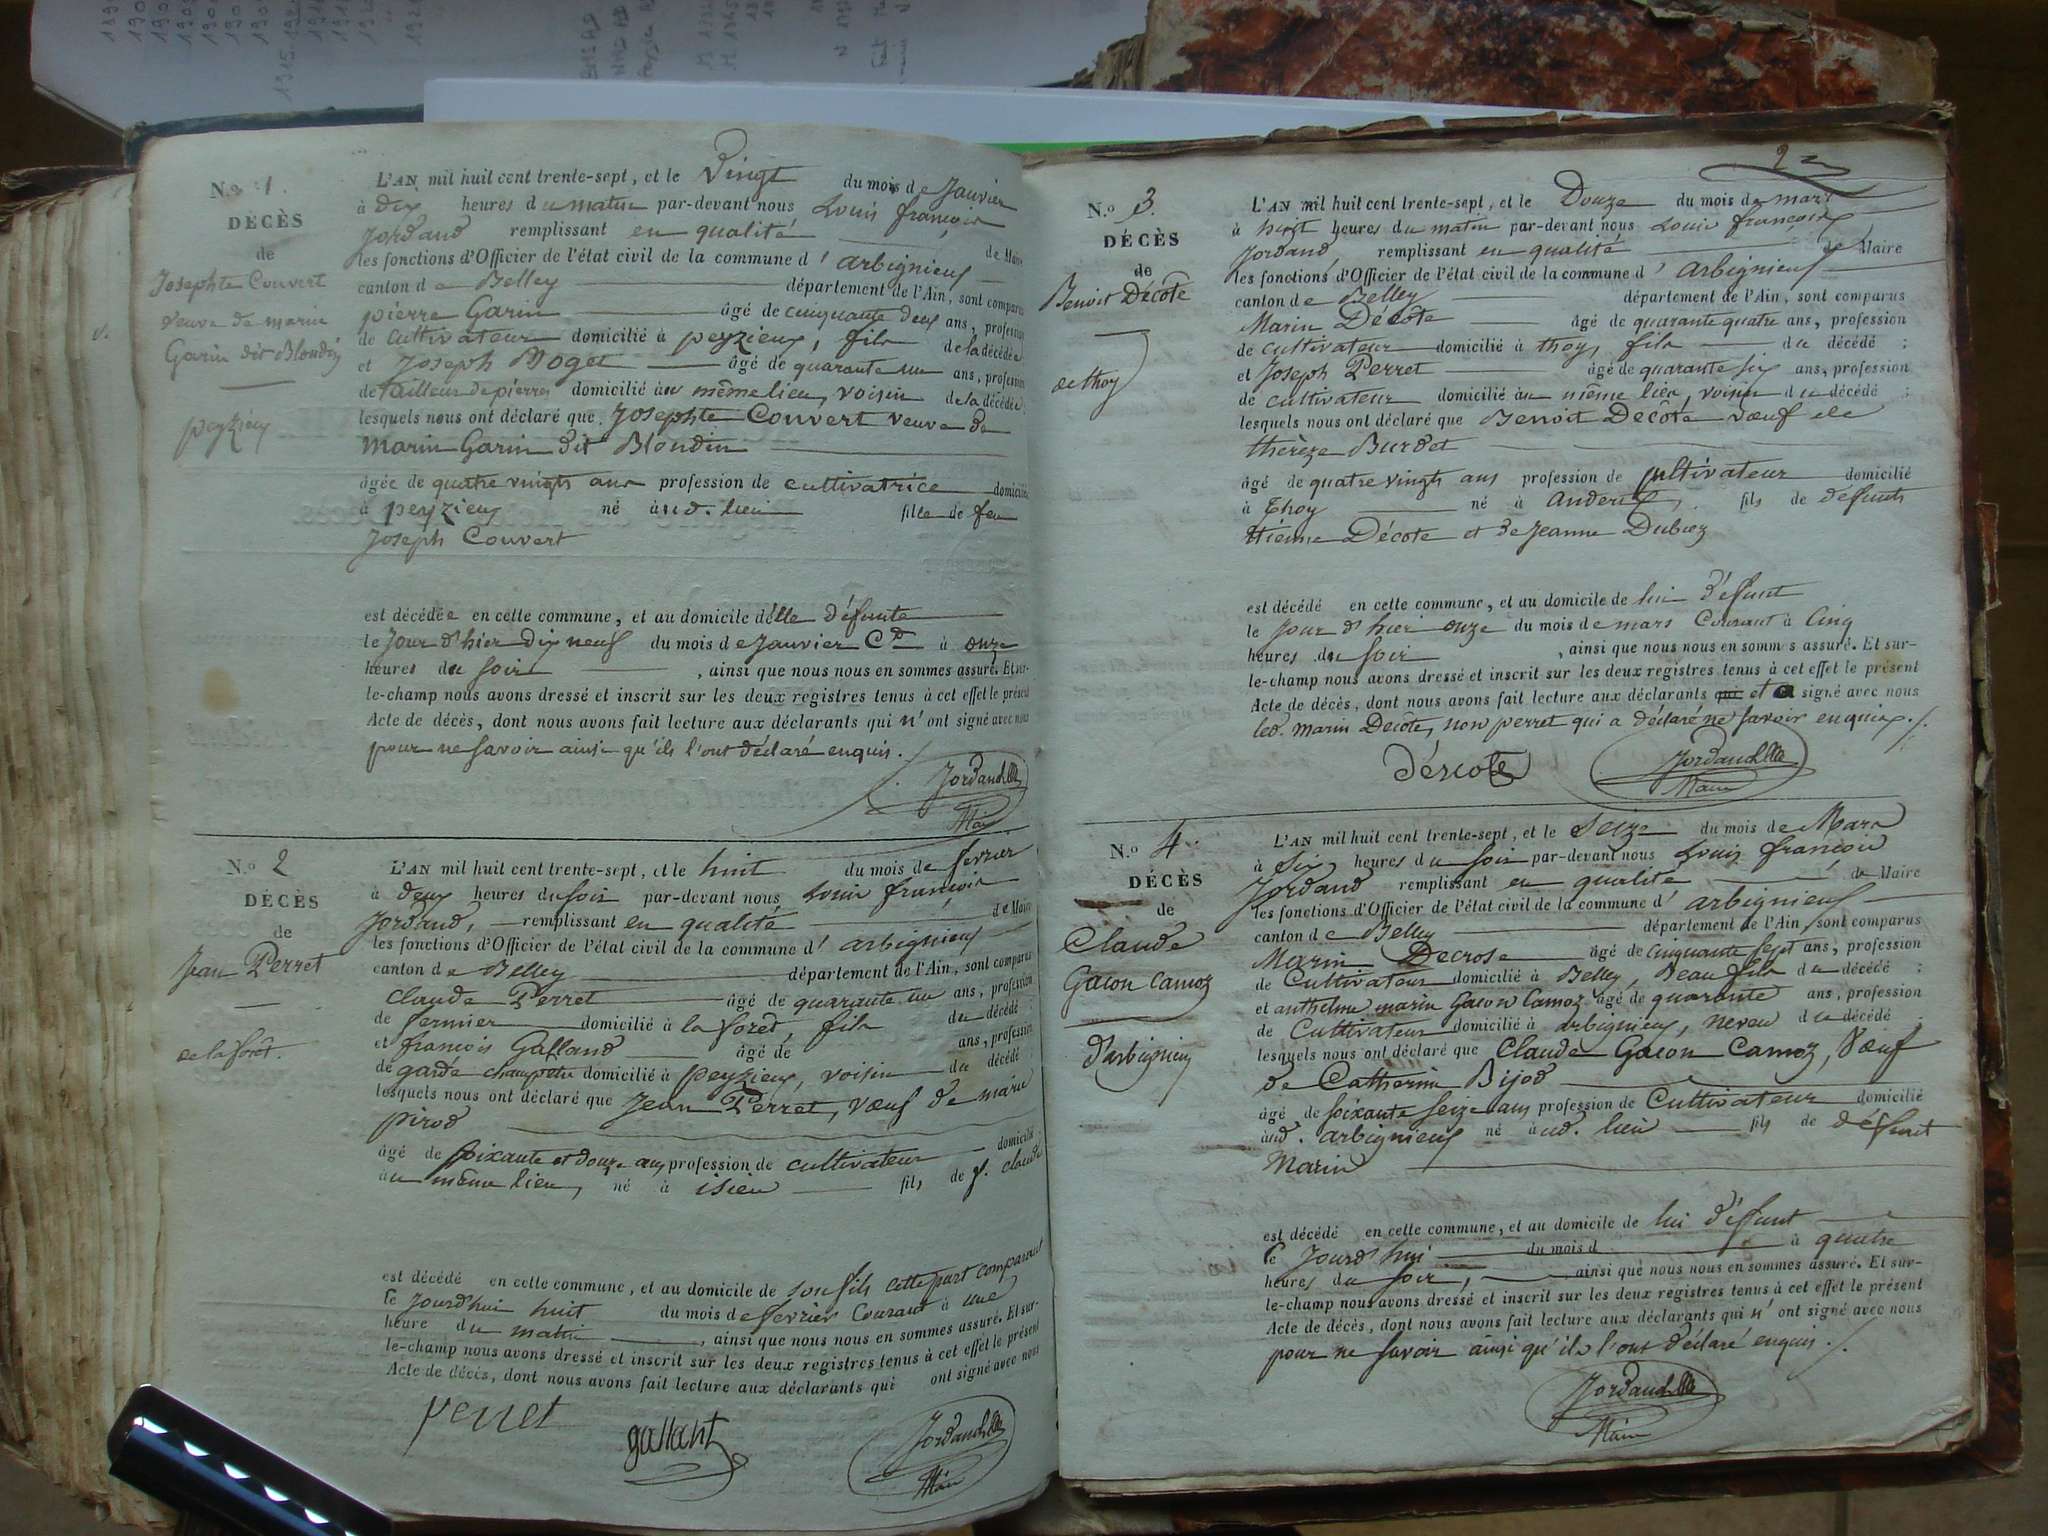 N.o 1.
DÉCÈS
de
Josephte Couvert
veuve de marin
Garin dit Blondin
peyzieu
L'AN mil huit cent trente-sept, et le Vingt du mois de Janvier
à dix heures du matin par-devant nous Louis françois
Jordand remplissant en qualité de Maire
les fonctions d'Officier de l'état civil de la commune d'arbignieux
canton de Belley département de l'Ain, sont comparus
pierre Garin âgé de cinquante deux ans, profession
de cultivateur domicilié à peyzieux, fils de la décédée
et Joseph Boget âgé de quarante un ans, profession
de tailleur de pierres domicilié au même lieu, voisin de la décédée
lesquels nous ont déclaré que Josephte Couvert veuve de
Marin Garin dit Blondin
âgée de quatre vingts ans profession de cultivatrice domiciliée
à peyzieu né aud. lieu fille de feu
Joseph Couvert
est décédée en cette commune, et au domicile d'elle défunte
le Jour d'hier dix neuf du mois de Janvier Ct à onze
heures du soir, ainsi que nous nous en sommes assuré. Et sur-
le-champ nous avons dressé et inscrit sur les deux registres tenus à cet effet le présent
Acte de décès, dont nous avons fait lecture aux déclarants qui n'ont signé avec nous
pour ne savoir ainsi qu'ils l'ont déclaré enquis.
Jordand
Maire
N.o 2
DÉCÈS
de
Jean Perret
de la forêt.
L'AN mil huit cent trente-sept, et le huit du mois de fevrier
à deux heures du soir par-devant nous Louis françois
Jordand, remplissant en qualité de Maire
les fonctions d'Officier de l'état civil de la commune d'arbignieux
canton de Belley département de l'Ain, sont comparus
Claude Perret âgé de quarante un ans, profession
de fermier domicilié à la forêt, fils du décédé
et françois Galland âgé de ans, profession
de garde champetre domicilié à peyzieux, voisin du décédé
lesquels nous ont déclaré que Jean Perret, vœuf de marie
pirod
âgé de soixante et douze ans profession de cultivateur domicilié
au même lieu, né à isieu fils de f. claude
est décédé en cette commune, et au domicile de son fils cette part comparant
le Jourd'hui huit du mois de fevrier Courant à une
heure du matin, ainsi que nous nous en sommes assuré. Et sur-
le-champ nous avons dressé et inscrit sur les deux registres tenus à cet effet le présent
Acte de décès, dont nous avons fait lecture aux déclarants qui ont signé avec nous
perret
gallant
Jordand
Maire
2
N.o 3.
DÉCÈS
de
Benoit Décôte
de thoy
L'AN mil huit cent trente-sept, et le Douze du mois de mars
à huit heures du matin par-devant nous Louis françois
Jordand, remplissant en qualité de Maire
les fonctions d'Officier de l'état civil de la commune d'arbignieux
canton de Belley département de l'Ain, sont comparus
Marin Décôte âgé de quarante quatre ans, profession
de cultivateur domicilié à thoy, fils du décédé ;
et Joseph Perret âgé de quarante six ans, profession
de cultivateur domicilié au même lieu, voisin du décédé ;
lesquels nous ont déclaré que Benoit Decôte vœuf de
thérèze Burdet
âgé de quatre vingts ans profession de cultivateur domicilié
à Thoy né à andert, fils de défunts
Etienne Décote et de Jeanne Dubiez
est décédé en cette commune, et au domicile de lui défunt
le Jour d'hier onze du mois de mars Courant à Cinq
heures du soir, ainsi que nous nous en sommes assuré. Et sur-
le-champ nous avons dressé et inscrit sur les deux registres tenus à cet effet le présent
Acte de décès, dont nous avons fait lecture aux déclarants qui et a signé avec nous
led. marin Decôte, non perret qui a déclaré ne savoir enquis.
Déscote
Jordand
Maire
N.o 4.
DÉCÈS
de
Claude
Gacon Camoz
d'arbignieu
L'AN mil huit cent trente-sept, et le Seize du mois de Mars
à six heures du soir par-devant nous Louis françois
Jordand remplissant en qualité de Maire
les fonctions d'Officier de l'état civil de la commune d'arbignieux
canton de Belley département de l'Ain, sont comparus
Marin Decrose âgé de cinquante sept ans, profession
de Cultivateur domicilié à Belley, Beau fils du décédé ;
et anthelme marin Gacon Camoz âgé de quarante ans, profession
de Cultivateur domicilié à arbignieux, neveu du décédé ;
lesquels nous ont déclaré que Claude Gacon Camoz, Vœuf
de Catherine Bijod
âgé de soixante seize ans profession de Cultivateur domicilié
aud. arbignieux né aud. lieu fils de défunt
Marin
est décédé en cette commune, et au domicile de lui défunt
le Jourd'hui du mois d à quatre
heures du soir, ainsi que nous nous en sommes assuré. Et sur-
le-champ nous avons dressé et inscrit sur les deux registres tenus à cet effet le présent
Acte de décès, dont nous avons fait lecture aux déclarants qui n'ont signé avec nous
pour ne savoir ainsi qu'ils l'ont déclaré enquis.
Jordand
Maire